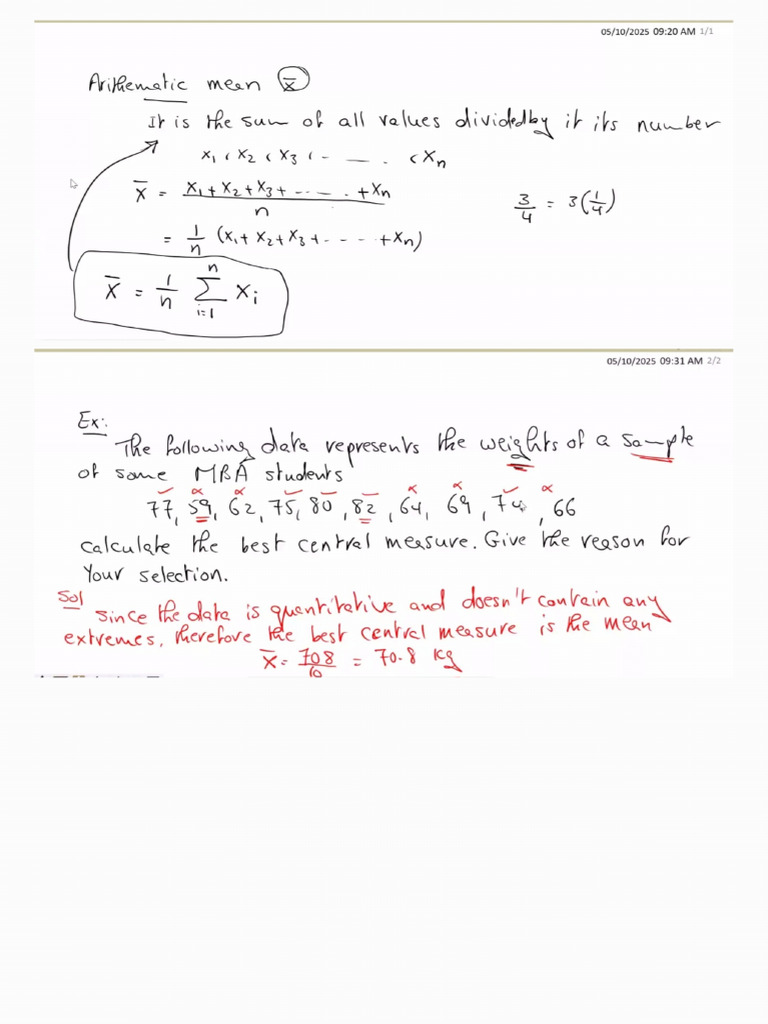 05/10/2025 09:20 AM 1/1
Arithematic mean x̄
It is the sum of all values dividedby it its number
x₁, x₂, x₃, - - - - . , xₙ
x̄ = (x₁ + x₂ + x₃ + - - - - . + xₙ) / n
3/4 = 3(1/4)
= 1/n (x₁ + x₂ + x₃ + - - - - + xₙ)
x̄ = 1/n ∑ᵢ₌₁ⁿ xᵢ
05/10/2025 09:31 AM 2/2
Ex:
The following data represents the weights of a sample
of some MBA students
77, 59, 62, 75, 80, 82, 64, 69, 74, 66
calculate the best central measure. Give the reason for
Your selection.
Sol
since the data is quantitative and doesn't contain any
extremes, therefore the best central measure is the mean
x̄ = 708/10 = 70.8 kg